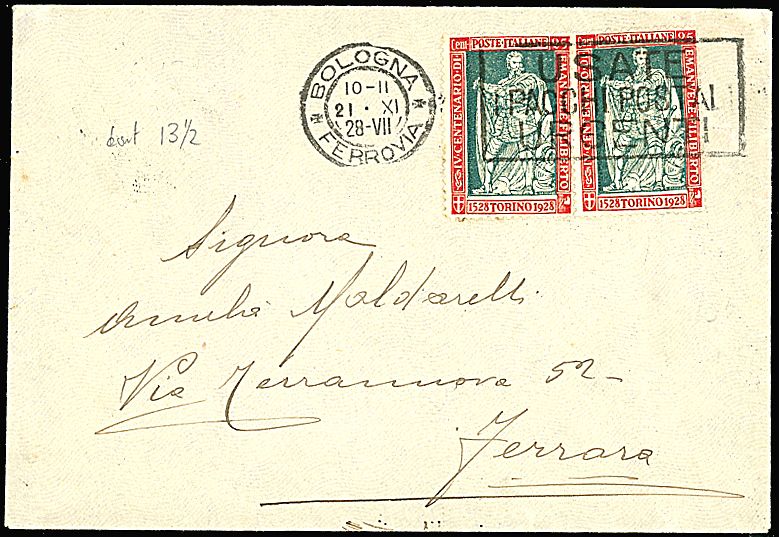 BOLOGNA
10-11
21 · XI
28-VII
FERROVIA
Cent. POSTE ITALIANE 25
IV CENTENARIO DI EMANUELE FILIBERTO
1528 TORINO 1928
Cent. POSTE ITALIANE 25
IV CENTENARIO DI EMANUELE FILIBERTO
1528 TORINO 1928
USATE
I PACCHI POSTALI
URGENTI
dent 13½
Signora
Amelia Maldarelli
Via Terranuova 52-
Ferrara